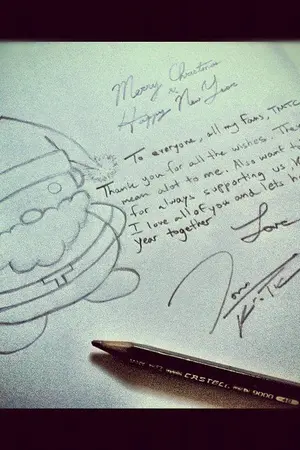 Merry Christmas
&
Happy New Year
To everyone, all my fans,
Thank you for all the wishes. The
mean alot to me. Also want t
for always supporting us.
I love all of you and lets h
year together
Love
CASTELL 9000